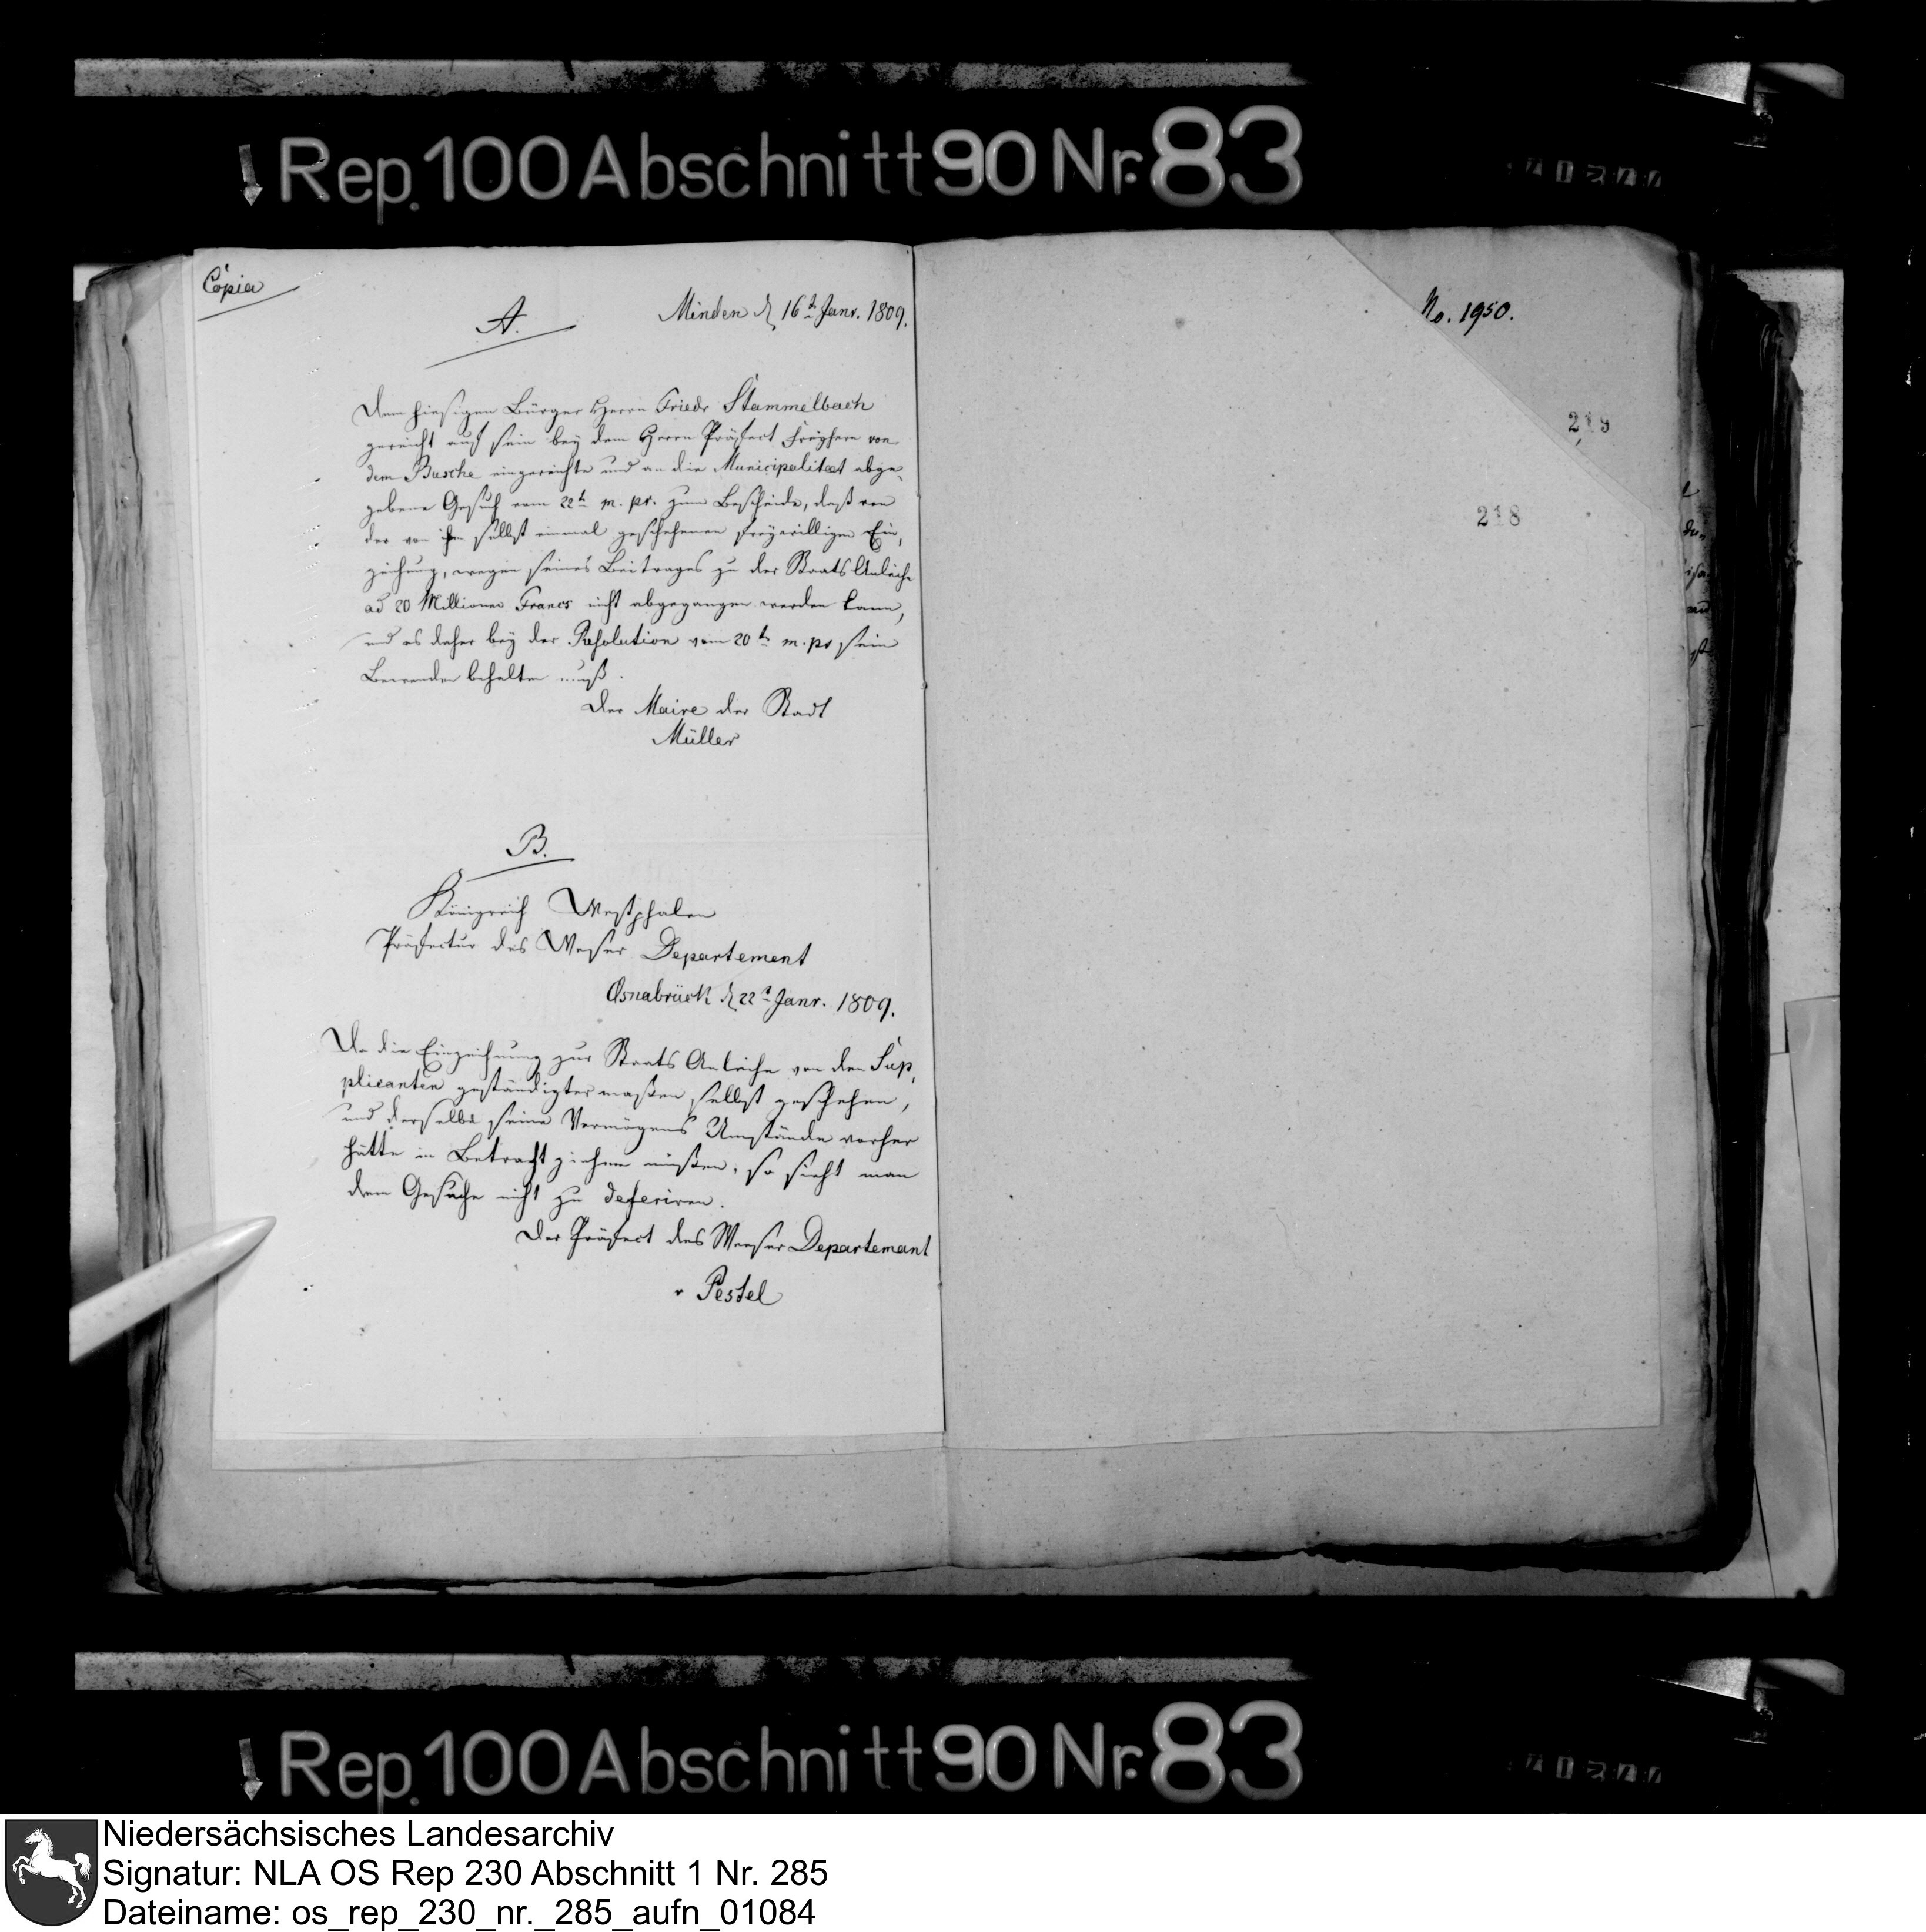 Rep. 100 Abschnitt 90 Nr. 83
Copia
A.
Minden d 16t Janr. 1809.
Dem hiesigen Bürger Herrn Friedr Stammelbach
gereicht auf sein bey dem Herrn Präfect Freyherr von
dem Busche eingereichte und an die Municipalitaet abge-
gebene Gesuch vom 22t m. pr. zum Bescheide, daß von
der von ihm selbst einmal geschehenen freywilligen Ein,
zeichung, wegen seines Beitrages zu der Staats Anleihe
ad 20 Millionen Francs nicht abgegangen werden kann,
und es daher bey der Resolution vom 20t m. pr sein
Bewenden behalten muß.
Der Maire der Stadt
Müller
B.
Königreich Westphalen
Präfectur des Weser Departement
Osnabrück d 22t Janr. 1809.
Da die Einzeichnung zur Staats Anleihe von dem Sup,
plicanten geständigtermaßen selbst geschehen,
und derselbe seine Vermögens Umstände vorher
hätte in Betracht ziehen müßen, so sieht man
dem Gesuche nicht zu deferiren.
Der Präfect des Weser Departement
v Pestel
No. 1950.
219
218
Rep. 100 Abschnitt 90 Nr. 83
Niedersächsisches Landesarchiv
Signatur: NLA OS Rep 230 Abschnitt 1 Nr. 285
Dateiname: os_rep_230_nr._285_aufn_01084